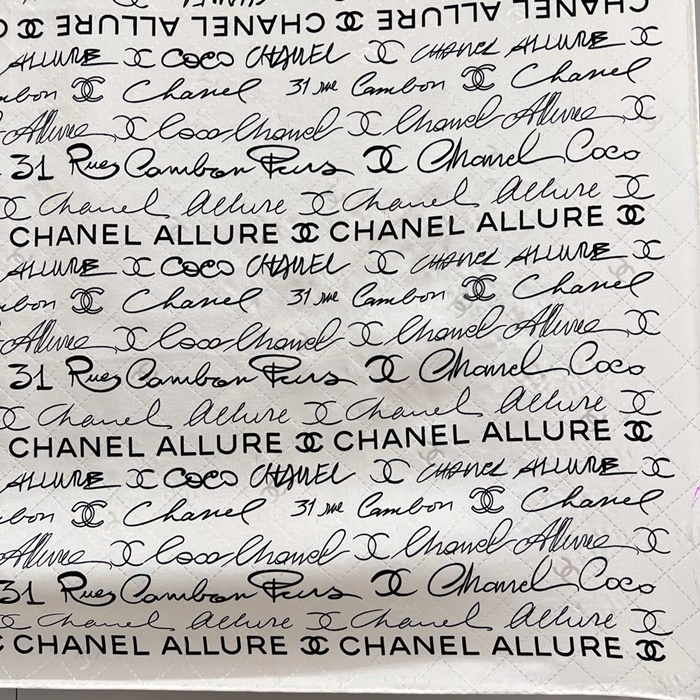 CHANEL ALLURE CHANEL ALLURE
ALLURE COCO CHANEL CHANEL ALLURE
mbon Chanel 31 rue Cambon Chanel
Allure Coco Chanel Chanel Allure
31 Rue Cambon Paris Chanel Coco
Chanel Allure Chanel Allure
CHANEL ALLURE CHANEL ALLURE
ALLURE COCO CHANEL CHANEL ALLURE
mbon Chanel 31 rue Cambon Chanel
Allure Coco Chanel Chanel Allure
31 Rue Cambon Paris Chanel Coco
Chanel Allure Chanel Allure
CHANEL ALLURE CHANEL ALLURE
ALLURE COCO CHANEL CHANEL ALLURE
bon Chanel 31 rue Cambon Chanel
Allure Coco Chanel Chanel Allure
31 Rue Cambon Paris Chanel Coco
Chanel Allure Chanel Allure
CHANEL ALLURE CHANEL ALLURE